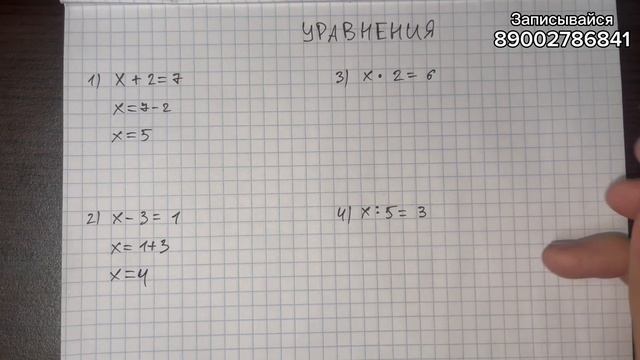 Записывайся
89002786841
УРАВНЕНИЯ
1) x + 2 = 7
x = 7 - 2
x = 5
2) x - 3 = 1
x = 1 + 3
x = 4
3) x · 2 = 6
4) x : 5 = 3